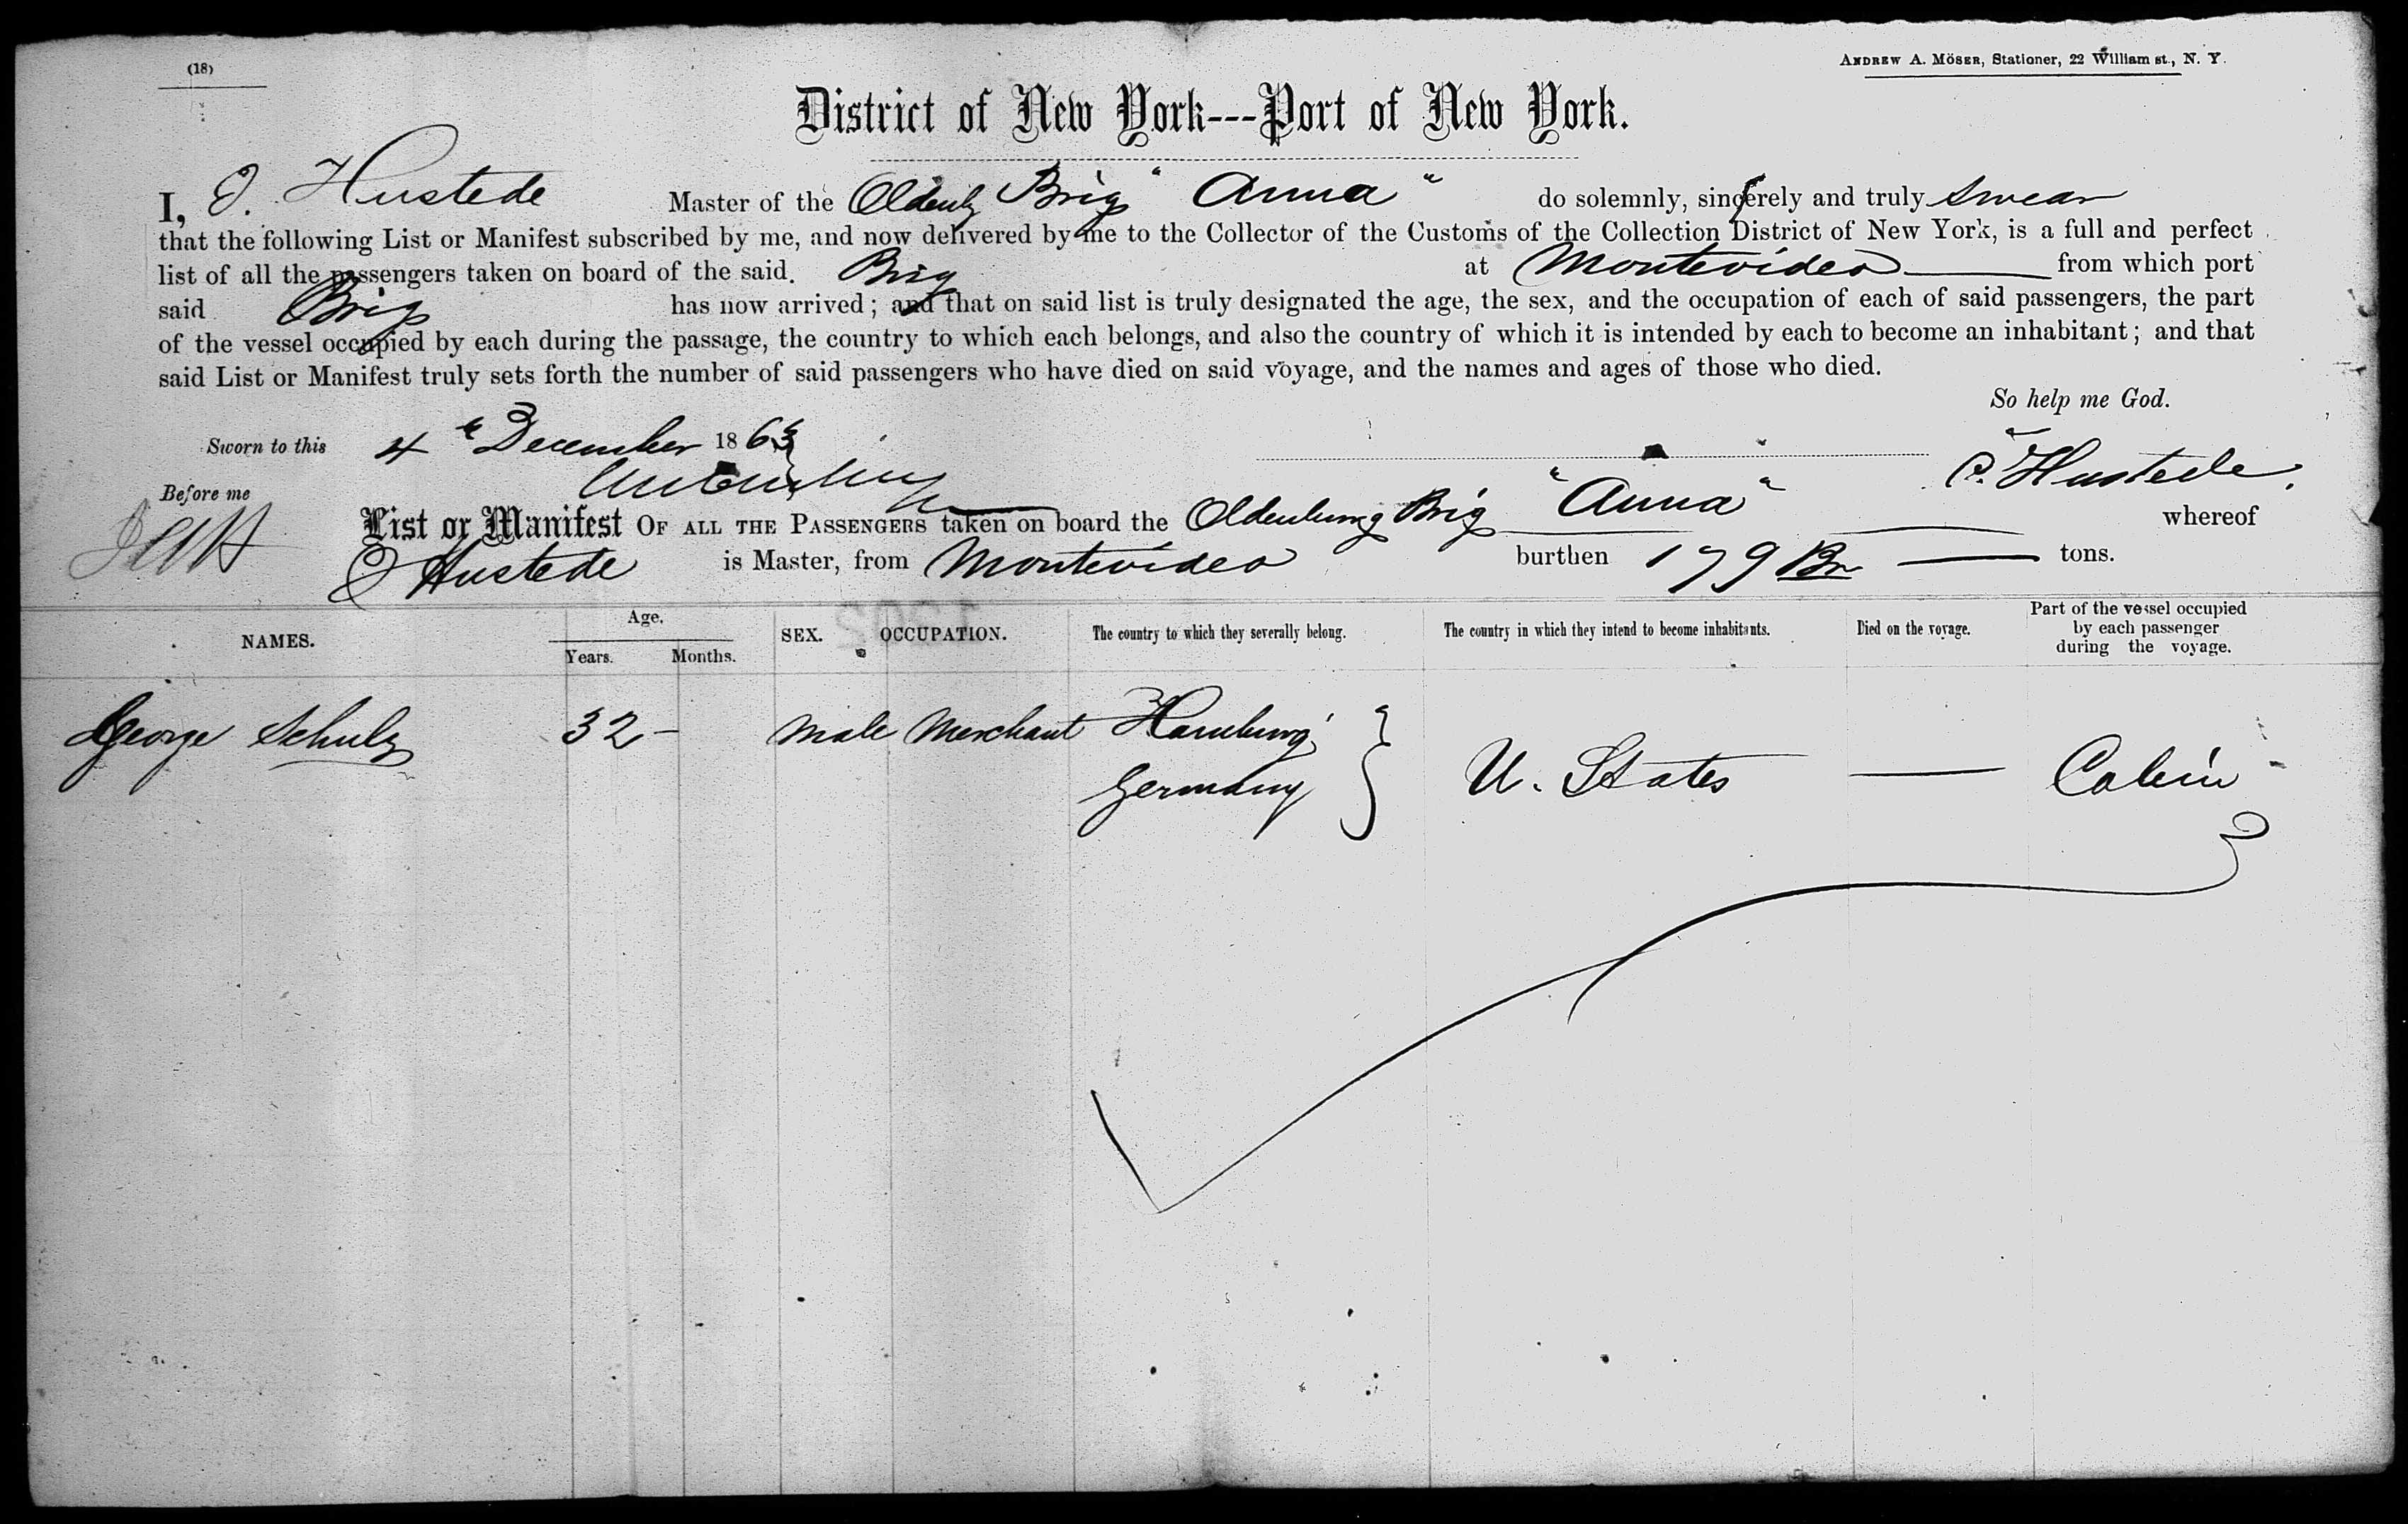 (18)
ANDREW A. MÖSER, Stationer, 22 William st., N. Y.
District of New York---Port of New York.
I, O. Hustede Master of the Oldenbg Brig "Anna" do solemnly, sincerely and truly swear
that the following List or Manifest subscribed by me, and now delivered by me to the Collector of the Customs of the Collection District of New York, is a full and perfect
list of all the passengers taken on board of the said. Brig at Montevideo from which port
said Brig has now arrived; and that on said list is truly designated the age, the sex, and the occupation of each of said passengers, the part
of the vessel occupied by each during the passage, the country to which each belongs, and also the country of which it is intended by each to become an inhabitant; and that
said List or Manifest truly sets forth the number of said passengers who have died on said voyage, and the names and ages of those who died.
So help me God.
Sworn to this 4th December 1863
Hustede.
Before me
List or Manifest OF ALL THE PASSENGERS taken on board the Oldenburg Brig "Anna" whereof
O Hustede is Master, from Montevideo burthen 179 tons.
NAMES. Age. Years. Months. SEX. OCCUPATION. The country to which they severally belong. The country in which they intend to become inhabitants. Died on the voyage. Part of the vessel occupied by each passenger during the voyage.
George Schulz 32 - Male Merchant Hamburg
Germany } U. States — Cabin